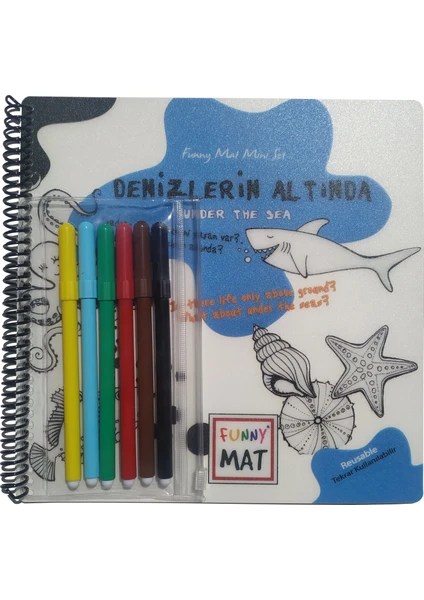 Funny Mat Mini Set
DENİZLERİN ALTINDA
UNDER THE SEA
var?
there life only above ground?
about under the sea?
FUNNY
MAT
Reusable
Tekrar Kullanılabilir